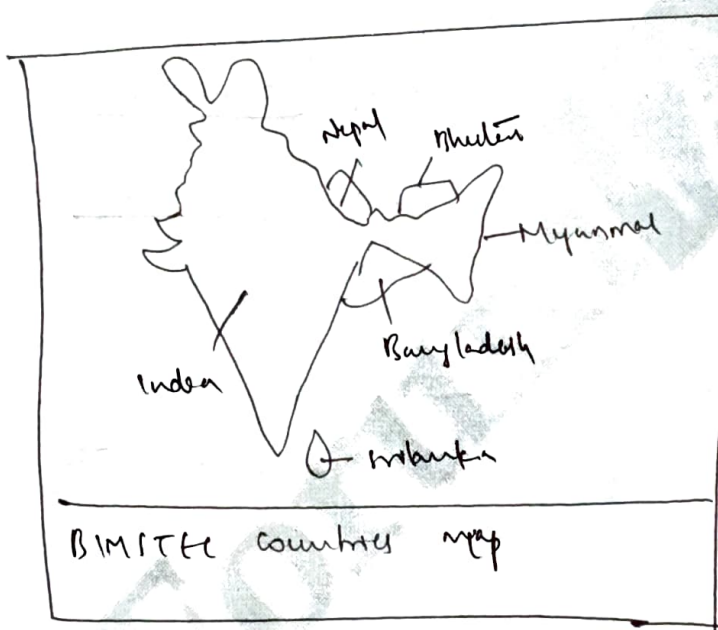 Nepal
Bhutan
Myanmar
Bangladesh
India
Srilanka
BIMSTEC countries map